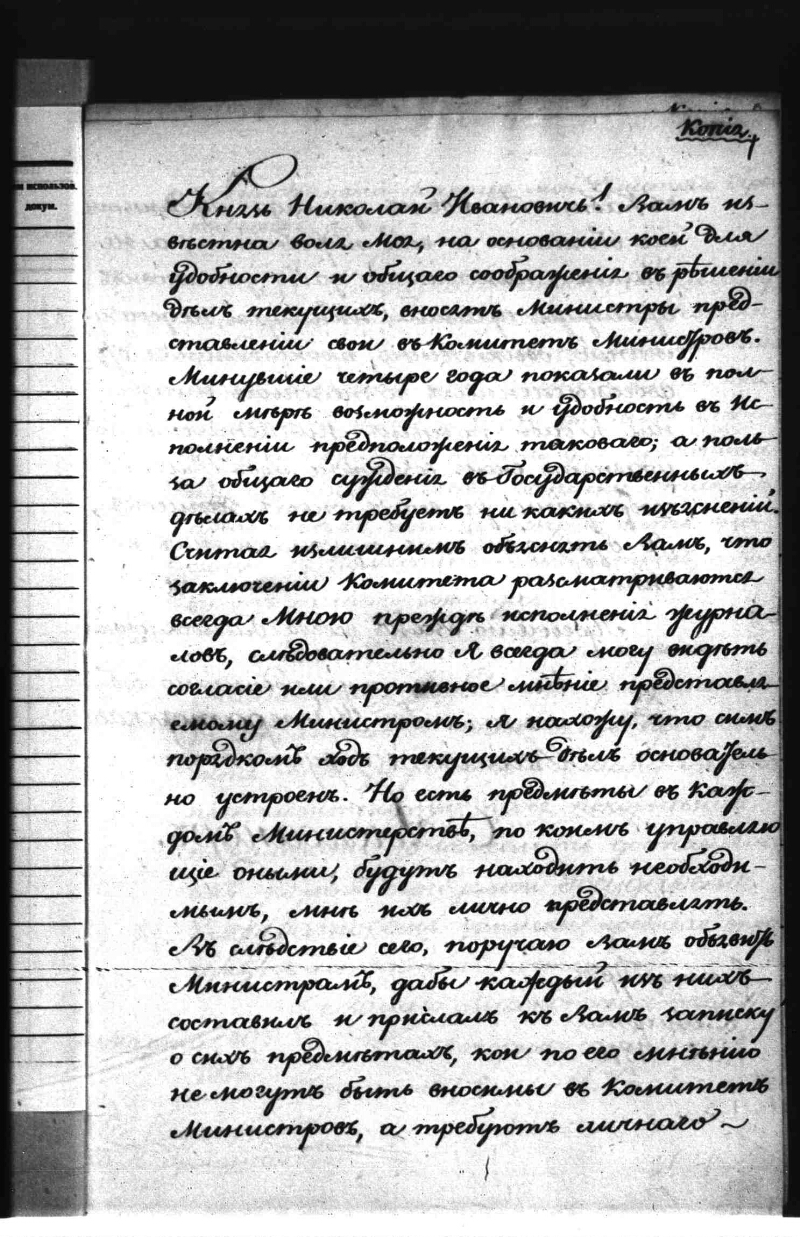 Копія
м использов.
докум.
Князь Николай Ивановичь! Вамъ из-
вѣстна воля Моя, на основаніи коей для
удобности и общаго соображенія въ рѣшеніи
дѣлъ текущихъ, вносятъ Министры пред-
ставленіи свои въ Комитетъ Министровъ.
Минувшіе четыре года показали въ пол-
ной мѣрѣ возможность и удобность въ ис-
полненіи предположенія таковаго; а поль-
за общаго сужденія въ Государственныхъ
дѣлахъ не требуетъ ни какихъ изъясненій.
Считая излишнимъ объяснять Вамъ, что
заключеніи Комитета разсматриваются
всегда Мною прежде исполненія журна-
ловъ, слѣдовательно Я всегда могу видѣть
согласіе или противное мнѣніе представля-
емому Министромъ; я нахожу, что симъ
порядкомъ ходъ текущихъ дѣлъ основатель
но устроенъ. Но есть предмѣты въ каж-
домъ Министерствѣ, по коимъ управляю
щіе оными, будутъ находить необходи-
мымъ, мнѣ ихъ лично представлять.
Въ слѣдствіе сего, поручаю Вамъ объявить
Министрамъ, дабы каждый изъ нихъ
составилъ и прислалъ къ Вамъ записку
о сихъ предмѣтахъ, кои по его мнѣнію
не могутъ быть вносимы въ Комитетъ
Министровъ, а требуютъ личнаго